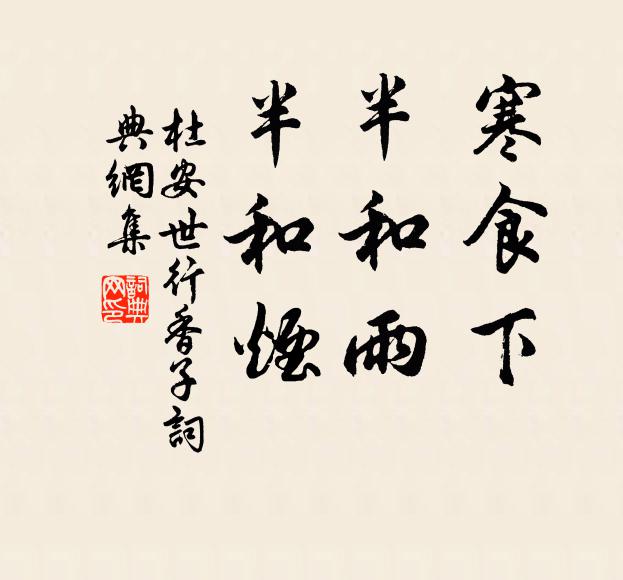 寒食下
半和雨
半和煙
杜安世行香子詞
典網集
詞典网印